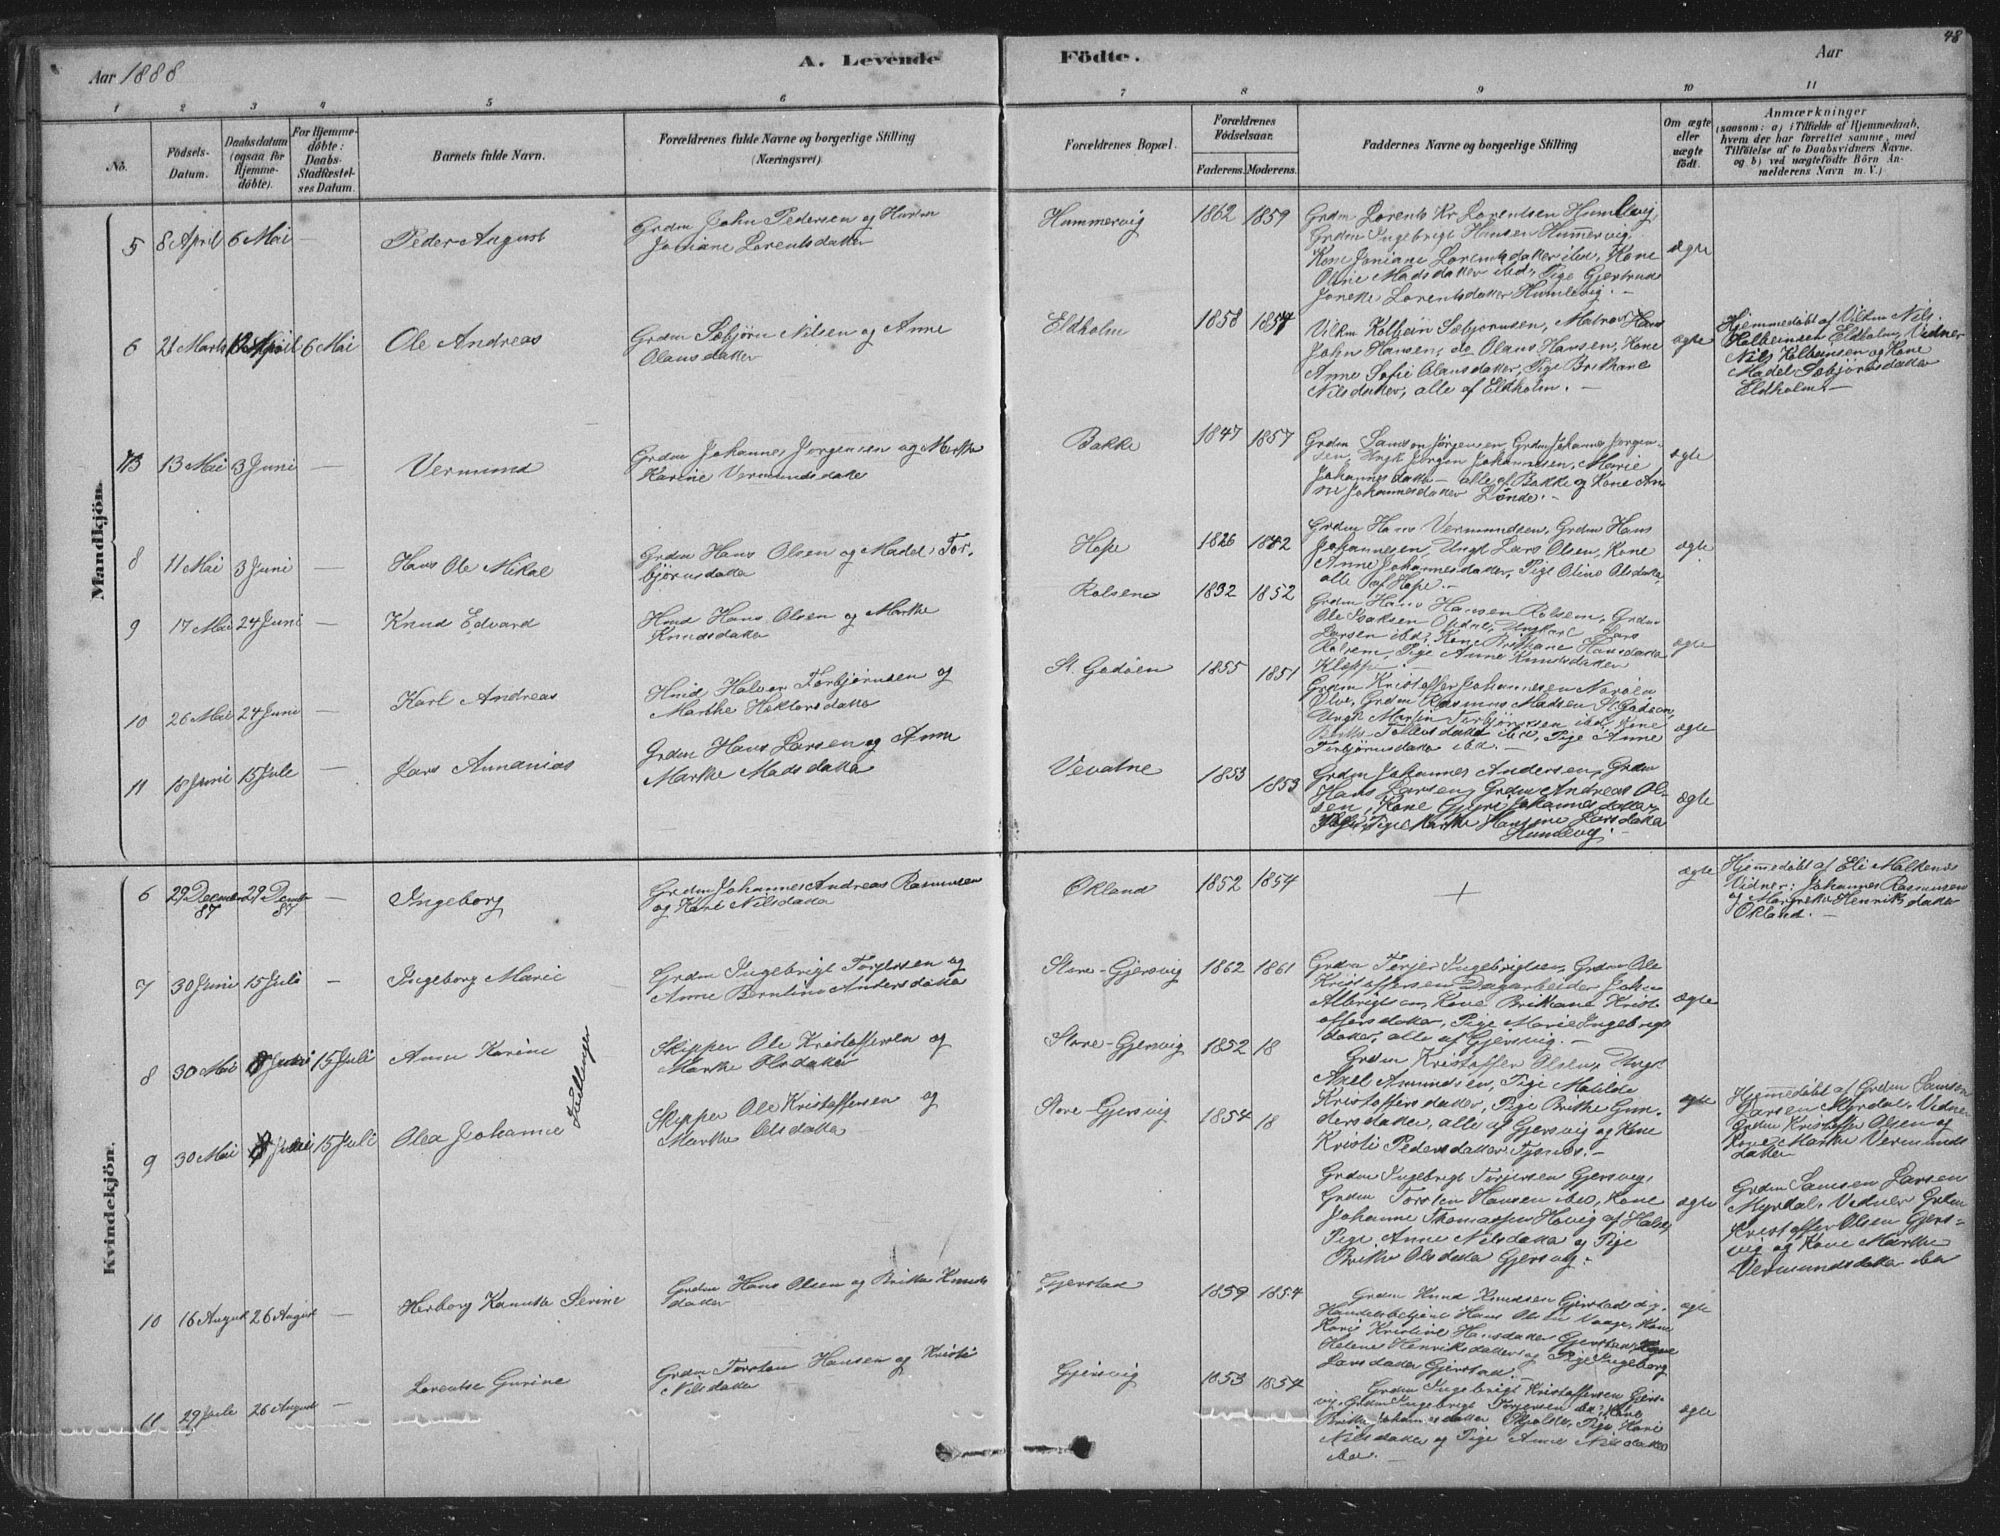 Aar 1888
A. Levende
Födte.
Aar
48
1 2 3 4 5 6 7 8 9 10 11
No.
Födsels-
Datum.
Daabsdatum
(ogsaa for
Hjemme-
döbte).
For Hjemme-
döbte:
Daabs-
Stadfæstel-
ses Datum.
Barnets fulde Navn.
Forældrenes fulde Navne og borgerlige Stilling
(Næringsvei)
Forældrenes Bopæl.
Forældrenes
Födselsaar.
Faderens. Moderens.
Faddernes Navne og borgerlige Stilling
Om ægte
eller
uægte
födt.
Anmærkninger
(saasom: a) i Tilfælde af Hjemmedaab,
hvem der har forrettet samme, med
Tilföielse af to Daabsvidners Navne.
og b) ved uægtefödte Börn An-
melderens Navn m. V.)
Mandkjön.
5 8 April 6 Mai — Peder August
Grdm John Pedersen og Hustru
Joniane Lorentsdatter
Hummervig 1862 1859
Grdm Lorents Kr Lorentsen Humlevig,
Grdm Ingebrigt Hansen Hummervig
Kone Joniane Lorentsdatter ibid, Kone
Oline Madsdatter ibid, Pige Gjertrud
Joneke Lorentsdatter Humlevig. —
ægte
6 21 Marts April 6 Mai Ole Andreas
Grdm Sæbjörn Nilsen og Anne
Olausdatter
Eldholm 1858 1857
Kolbein Sæbjörnsen, Matros Hans
John Hansen, do Olaus Hansen, Kone
Anne Sofie Olausdatter, Pige Brithane
Nilsdatter, alle af Eldholm. —
ægte
Hjemmedöbt af Nils
Kolbeinsen Eldholm, Vidner
Nils Kolbeinsen og Kone
Madel Sæbjörnsdatter
Eldholm —
13 Mai 3 Juni — Vermund
Grdm Johannes Jörgensen og Marthe
Karine Vermundsdatter
Bakke 1847 1857
Grdm Samson Jörgensen, Grdm Johannes Jörgen-
sen, Ungk Jörgen Johannessen, Marie
Johannesdatter — alle af Bakke og Kone An-
ne Johannesdatter Lönde. —
ægte
8 11 Mai 3 Juni — Hans Ole Mikal
Grdm Hans Olsen og Madel Tor-
björnsdatter
Hope 1826 1842
Grdm Hans Vermundsen, Grdm Hans
Johannesen, Ungk Lars Olsen, Kone
Anne Johannesdatter, Pige Olina Olsdatter
alle af Hope. —
ægte
9 17 Mai 24 Juni — Knud Edvard
Hmd Hans Olsen og Marthe
Knudsdatter
Rolsene 1832 1852
Grdm Hans Hansen Rolsene, Grdm
Ole Isaksen Ungkarl Lars
Larsen ibid, Kone Brithane Hansdatter
Rolsene, Pige Anne Knudsdatter
Kleppe —
ægte
10 26 Mai 24 Juni — Karl Andreas
Hmd Halvor Torbjörnsen og
Marthe Hektorsdatter
St. Godöen 1855 1851
Grdm Kristoffer Johannesen Noröen
Ölve, Grdm Rasmus Madsen St. Godöen,
Ungk Martin Torbjörnsen ibid, Kone
Tollevsdatter ibid, Pige Anne
Torbjörnsdatter ibid. —
ægte
11 18 Juni 15 Juli — Lars Annanias
Grdm Hans Larsen og Anne
Marthe Madsdatter
Vevatne 1853 1853
Grdm Johannes Andersen, Grdm
Hans Larsen, Grdm Andreas Ol-
sen, Kone Gjöri Johannesdatter,
Pige Marthe Hansine Larsdatter
Humlevig. —
ægte
Kvindekjön.
6 29 Decmbr 87 29 Decmbr 87 — Ingeborg
Grdm Johannes Andreas Rasmussen
og Kari Nilsdatter
Økland 1852 1854
+
ægte
Hjemmedöbt af Eli
Vidner: Johannes Rasmussen
og Margrethe Henriksdatter
Økland. —
7 30 Juni 15 Juli — Ingeborg Marie
Grdm Ingebrigt Torjersen og
Anne Berntine Andersdatter
Store-Gjersvig 1862 1861
Grdm Torjer Ingebrigtsen, Grdm Ole
Kristoffersen Dagarbeider John
Albrigtsen, Kone Brithane Krist-
offersdatter, Pige Marie Ingebrigts
datter, alle af Gjersvig. —
ægte
8 30 Mai Juni 15 Juli Anna Karine
Tvillinger
Skipper Ole Kristoffersen og
Marthe Olsdatter
Store-Gjersvig 1852 18
Grdm Kristoffer Olsen, Ungk
Axel Amundsen, Pige Matilde
Kristoffersdatter, Pige Brithe Gun-
dersdatter, alle af Gjersvig og Kone
Kristi Pedersdatter Tysnes. —
ægte
Hjemmedöbt af Grdm Samson
Larsen Myrdal. Vidner
Grdm Kristoffer Olsen og
Kone Marthe Vermunds
datter
9 30 Mai Juni 15 Juli Olea Johanne
Skipper Ole Kristoffersen og
Marthe Olsdatter
Store-Gjersvig 1854 18
Grdm Ingebrigt Torjersen Gjersvig,
Grdm Torsten Hansen ibid, Kone
Johanne Thomassen Hovig af Halse,
Pige Anne Nilsdatter og Pige
Brithe Olsdatter Gjersvig.
ægte
Grdm Samson Larsen
Myrdal. Vidner Grdm
Kristoffer Olsen Gjers-
vig og Kone Marthe
Vermundsdatter ibid
10 16 August 26 August — Herborg Kanutte Serine
Grdm Hans Olsen og Britha Knuds
datter
Gjerstad 1859 1854
Grdm Knud Knudsen Gjerstad,
Handelsbetjent Hans Olsen Vaage, Kone
Kari Kristine Hansdatter Gjerstad, Kone
Helene Henriksdatter og Pige Ingeborg
Larsdatter Gjerstad. —
ægte
11 29 Juli 26 August — Lorentse Gurine
Grdm Torsten Hansen og Kristi
Nilsdatter
Gjersvig 1853 1854
Grdm Ingebrigt Kristoffersen Gjers-
vig, Grdm Ingebrigt Torjersen ibid, Kone
Brithe Johannesdatter Pige Kari
Nilsdatter og Pige Anne Nilsdatter
ibid. —
ægte